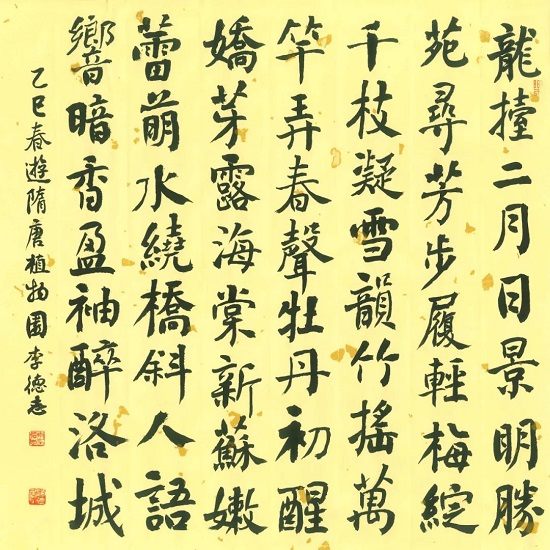 龍擡二月日景明勝
苑尋芳步履輕梅綻
千枝凝雪韻竹搖萬
竿弄春聲牡丹初醒
嬌芽露海棠新蘇嫩
蕾萌水繞橋斜人語
響暗香盈袖醉洛城
乙巳春遊隋唐植物園李德志